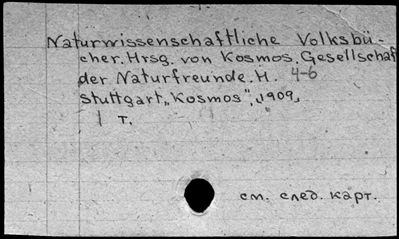 Naturwissenschaftliche Volksbü-
cher. Hrsg. von Kosmos. Gesellschaf
der Naturfreunde. H. 4-6
Stuttgart, „Kosmos", 1909.
1 т.
см. след. карт.